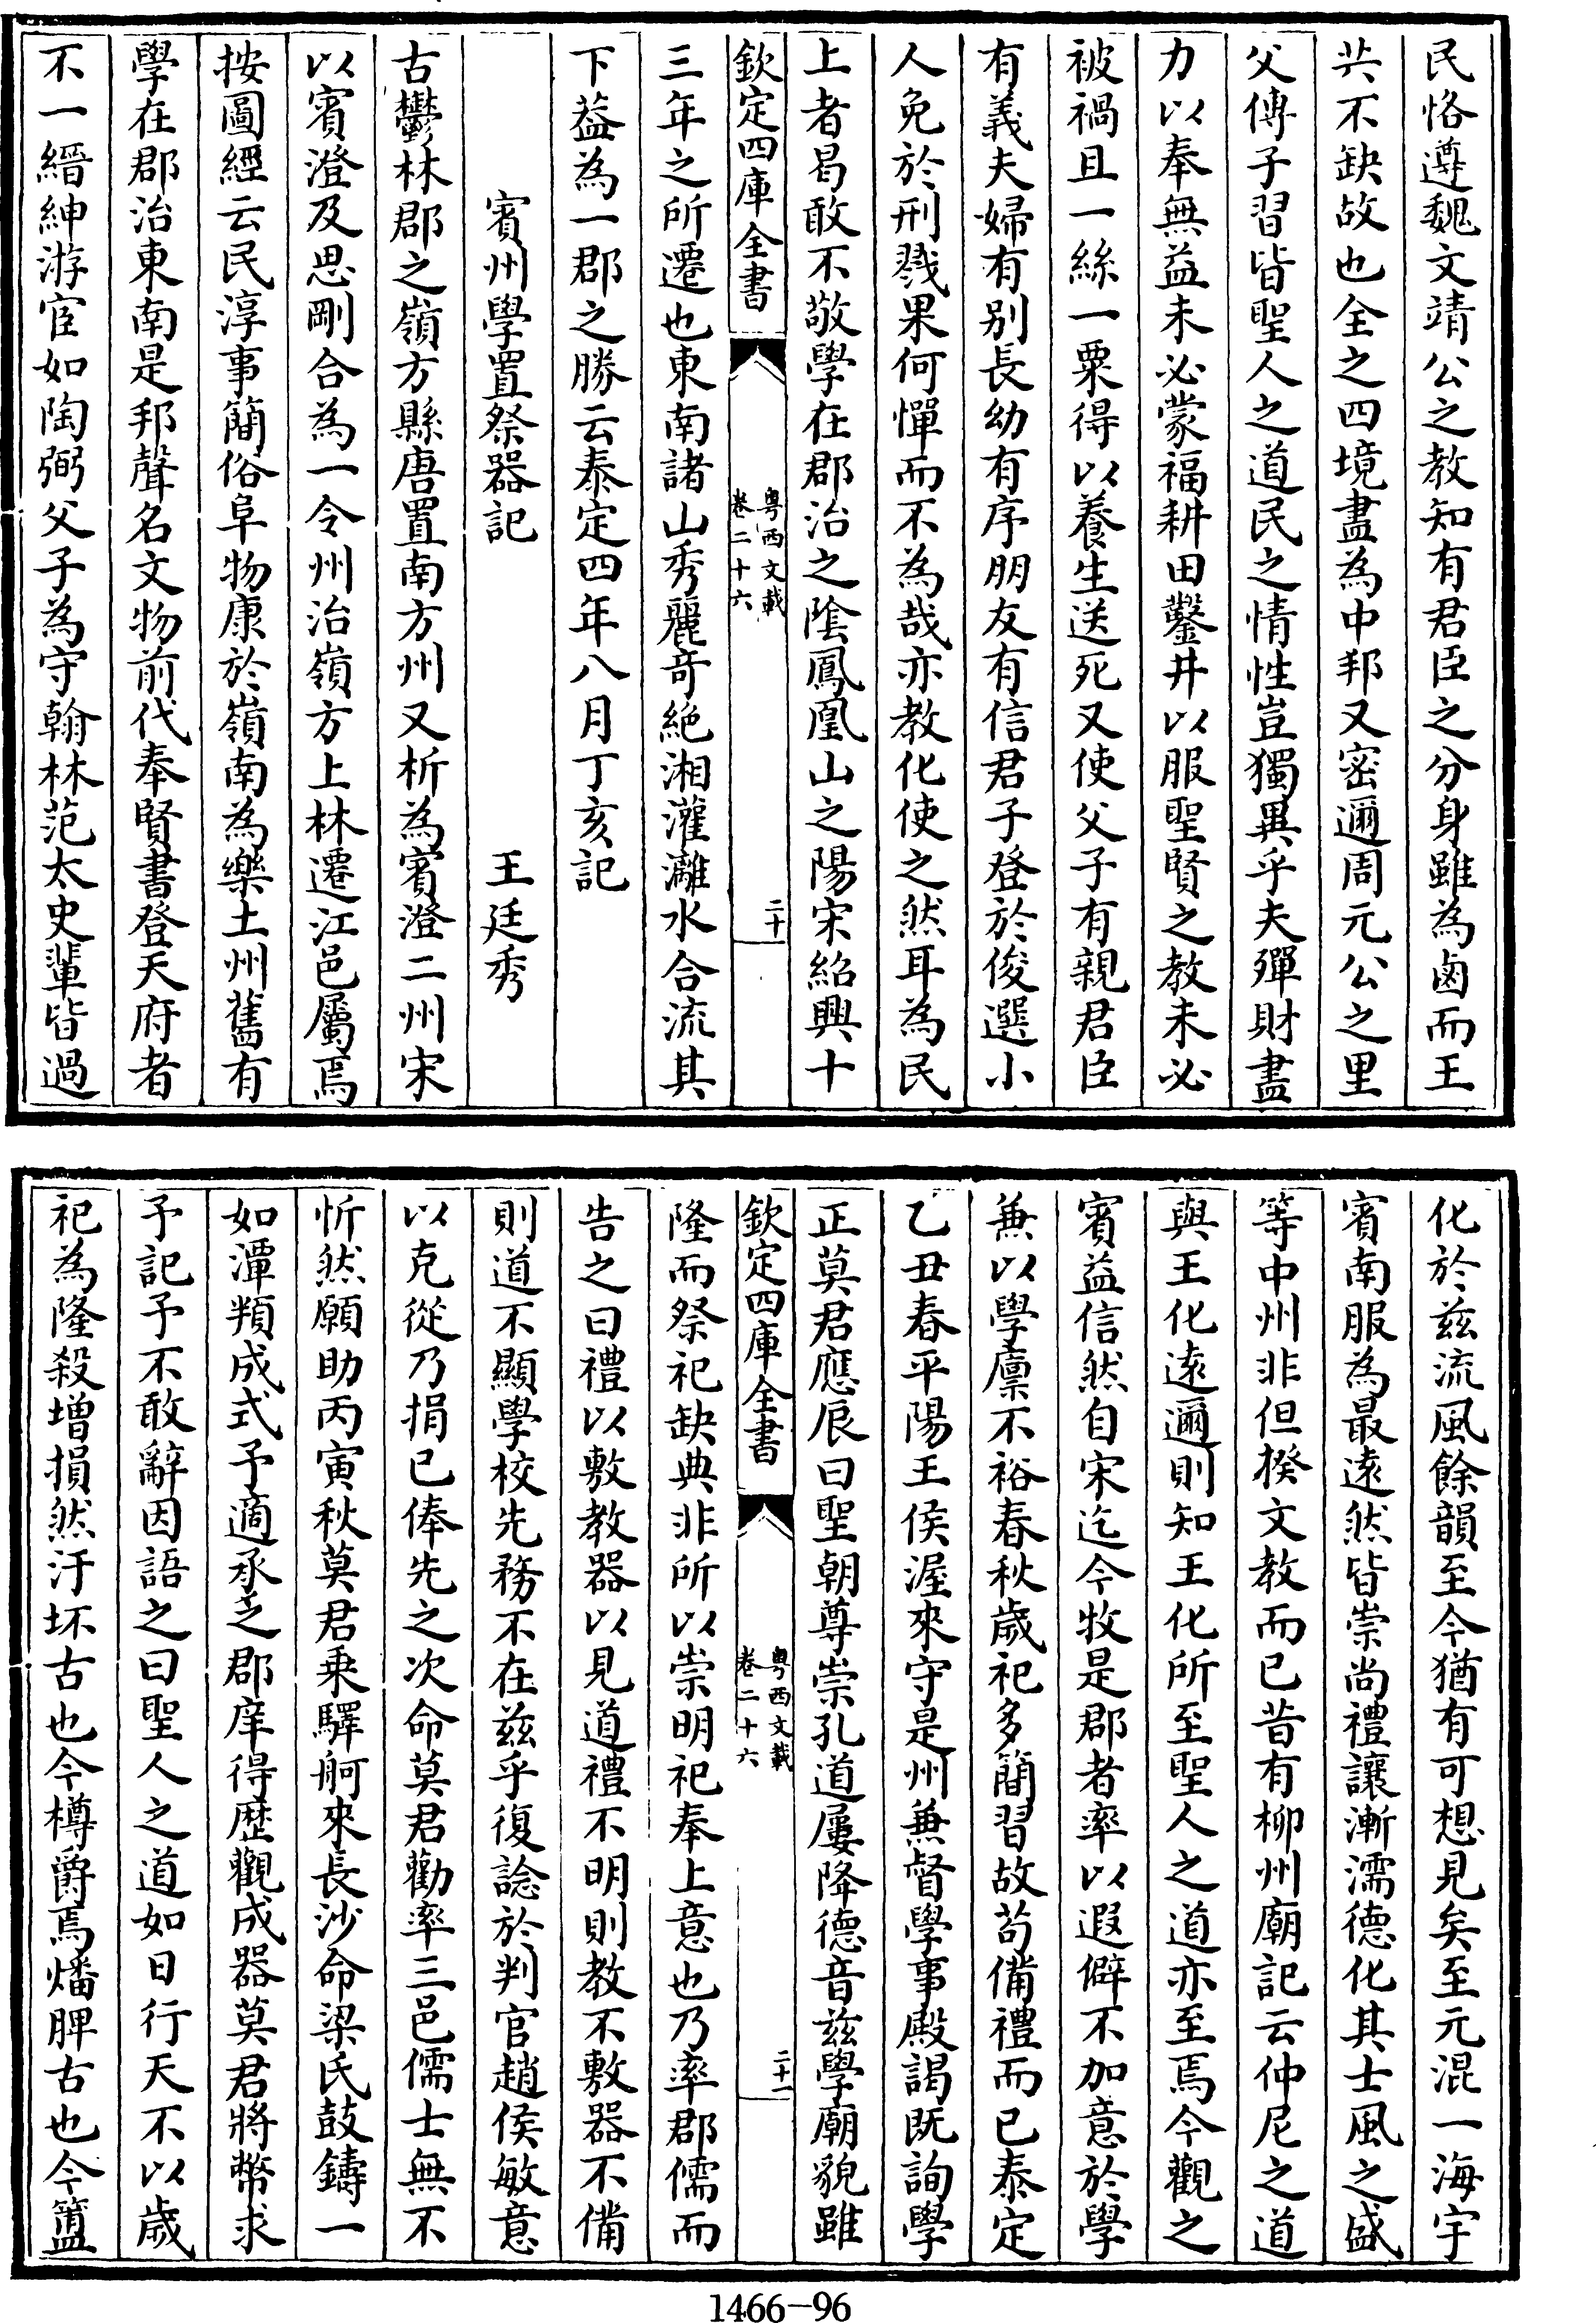 民恪遵魏文靖公之教知有君臣之分身雖為鹵而王
共不缺故也全之四境盡為中邦又密邇周元公之里
父傅子習皆聖人之道民之情性豈獨異乎夫殫財盡
力以奉無益未必蒙福耕田鑿井以服聖賢之教未必
被禍且一絲一粟得以養生送死又使父子有親君臣
有義夫婦有别長幼有序朋友有信君子登於俊選小
人免於刑戮果何憚而不為哉亦教化使之然耳為民
上者曷敢不敬學在郡治之隂鳳凰山之陽宋紹興十
欽定四庫全書
粤西文載
卷二十六
二十
三年之所遷也東南諸山秀麗奇絶湘灌灕水合流其
下葢為一郡之勝云泰定四年八月丁亥記
賓州學置祭器記
王廷秀
古鬱林郡之嶺方縣唐置南方州又析為賓澄二州宋
以賓澄及思剛合為一令州治嶺方上林遷江邑屬焉
按圖經云民淳事簡俗阜物康於嶺南為樂土州舊有
學在郡治東南是邦聲名文物前代奉賢書登天府者
不一縉紳游宦如陶弼父子為守翰林范太史輩皆過
化於兹流風餘韻至今猶有可想見矣至元混一海宇
賓南服為最遠然皆崇尚禮讓漸濡德化其士風之盛
等中州非但揆文教而已昔有柳州廟記云仲尼之道
與王化遠邇則知王化所至聖人之道亦至焉今觀之
賓益信然自宋迄今牧是郡者率以遐僻不加意於學
兼以學廪不裕春秋歲祀多簡習故苟備禮而已泰定
乙丑春平陽王侯渥來守是州兼督學事殿謁既詢學
正莫君應辰曰聖朝尊崇孔道屢降德音兹學廟貌雖
欽定四庫全書
粤西文載
卷二十六
二十一
隆而祭祀缺典非所以崇明祀奉上意也乃率郡儒而
告之曰禮以敷教器以見道禮不明則教不敷器不備
則道不顯學校先務不在兹乎復諗於判官趙侯敏意
以克從乃捐己俸先之次命莫君勸率三邑儒士無不
忻然願助丙寅秋莫君乘驛舸來長沙命梁氏鼓鑄一
如潭頖成式予適承乏郡庠得歴觀成器莫君將幣求
予記予不敢辭因語之曰聖人之道如日行天不以歲
祀為隆殺增損然汙坏古也今樽爵焉燔脾古也今簠
1466—96